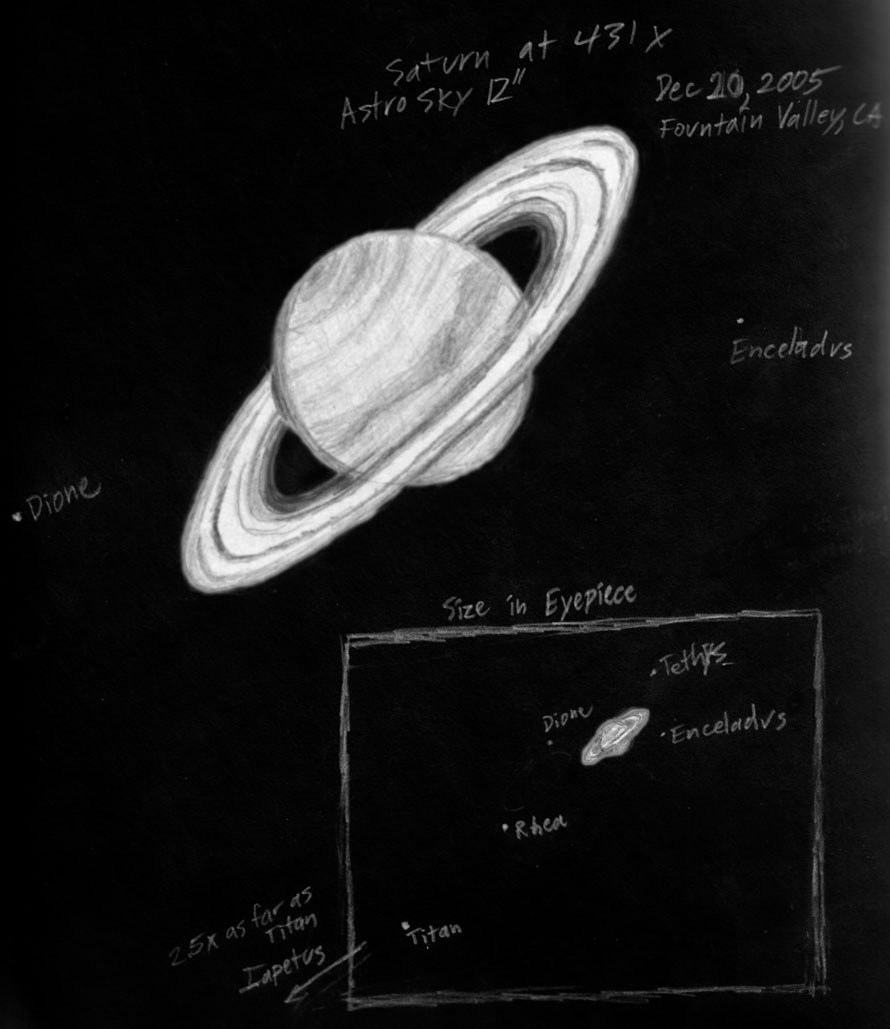 Saturn at 431x
Astro Sky 12"
Dec 20, 2005
Fountain Valley, CA
Enceladus
Dione
Size in Eyepiece
Tethys
Dione
Enceladus
Rhea
Titan
2.5x as far as
Titan
Iapetus